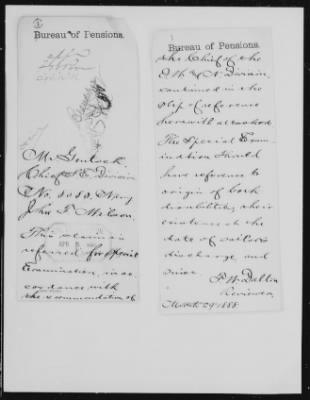 Bureau of Pensions.
Mr.
Chief S. E. Division
No. 3083, Navy
John F. Wilson.
This claim is
referred for Special
Examination, in ac-
cordance with
the recommendation of
Bureau of Pensions.
the Chief of the
N. Division,
contained in the
slip of reference
herewith attached
The Special Exam-
ination should
have reference to
origin of both
disabilities, their
existence at the
date of sailor's
discharge, and
since.
Reviewer
March 29 1888.